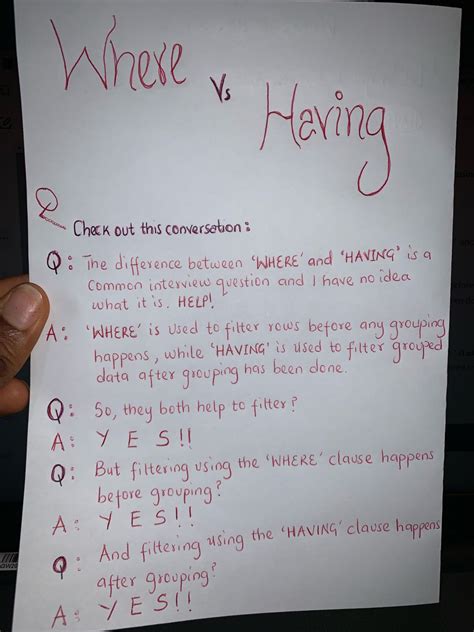 Where
Vs
Having
Q
Check out this conversation:
Q: The difference between 'WHERE' and 'HAVING' is a
common interview question and I have no idea
what it is. HELP!
A: 'WHERE' is used to filter rows before any grouping
happens, while 'HAVING' is used to filter grouped
data after grouping has been done.
Q: So, they both help to filter?
A: YES!!
Q: But filtering using the 'WHERE' clause happens
before grouping?
A: YES!!
Q: And filtering using the 'HAVING' clause happens
after grouping?
A: YES!!